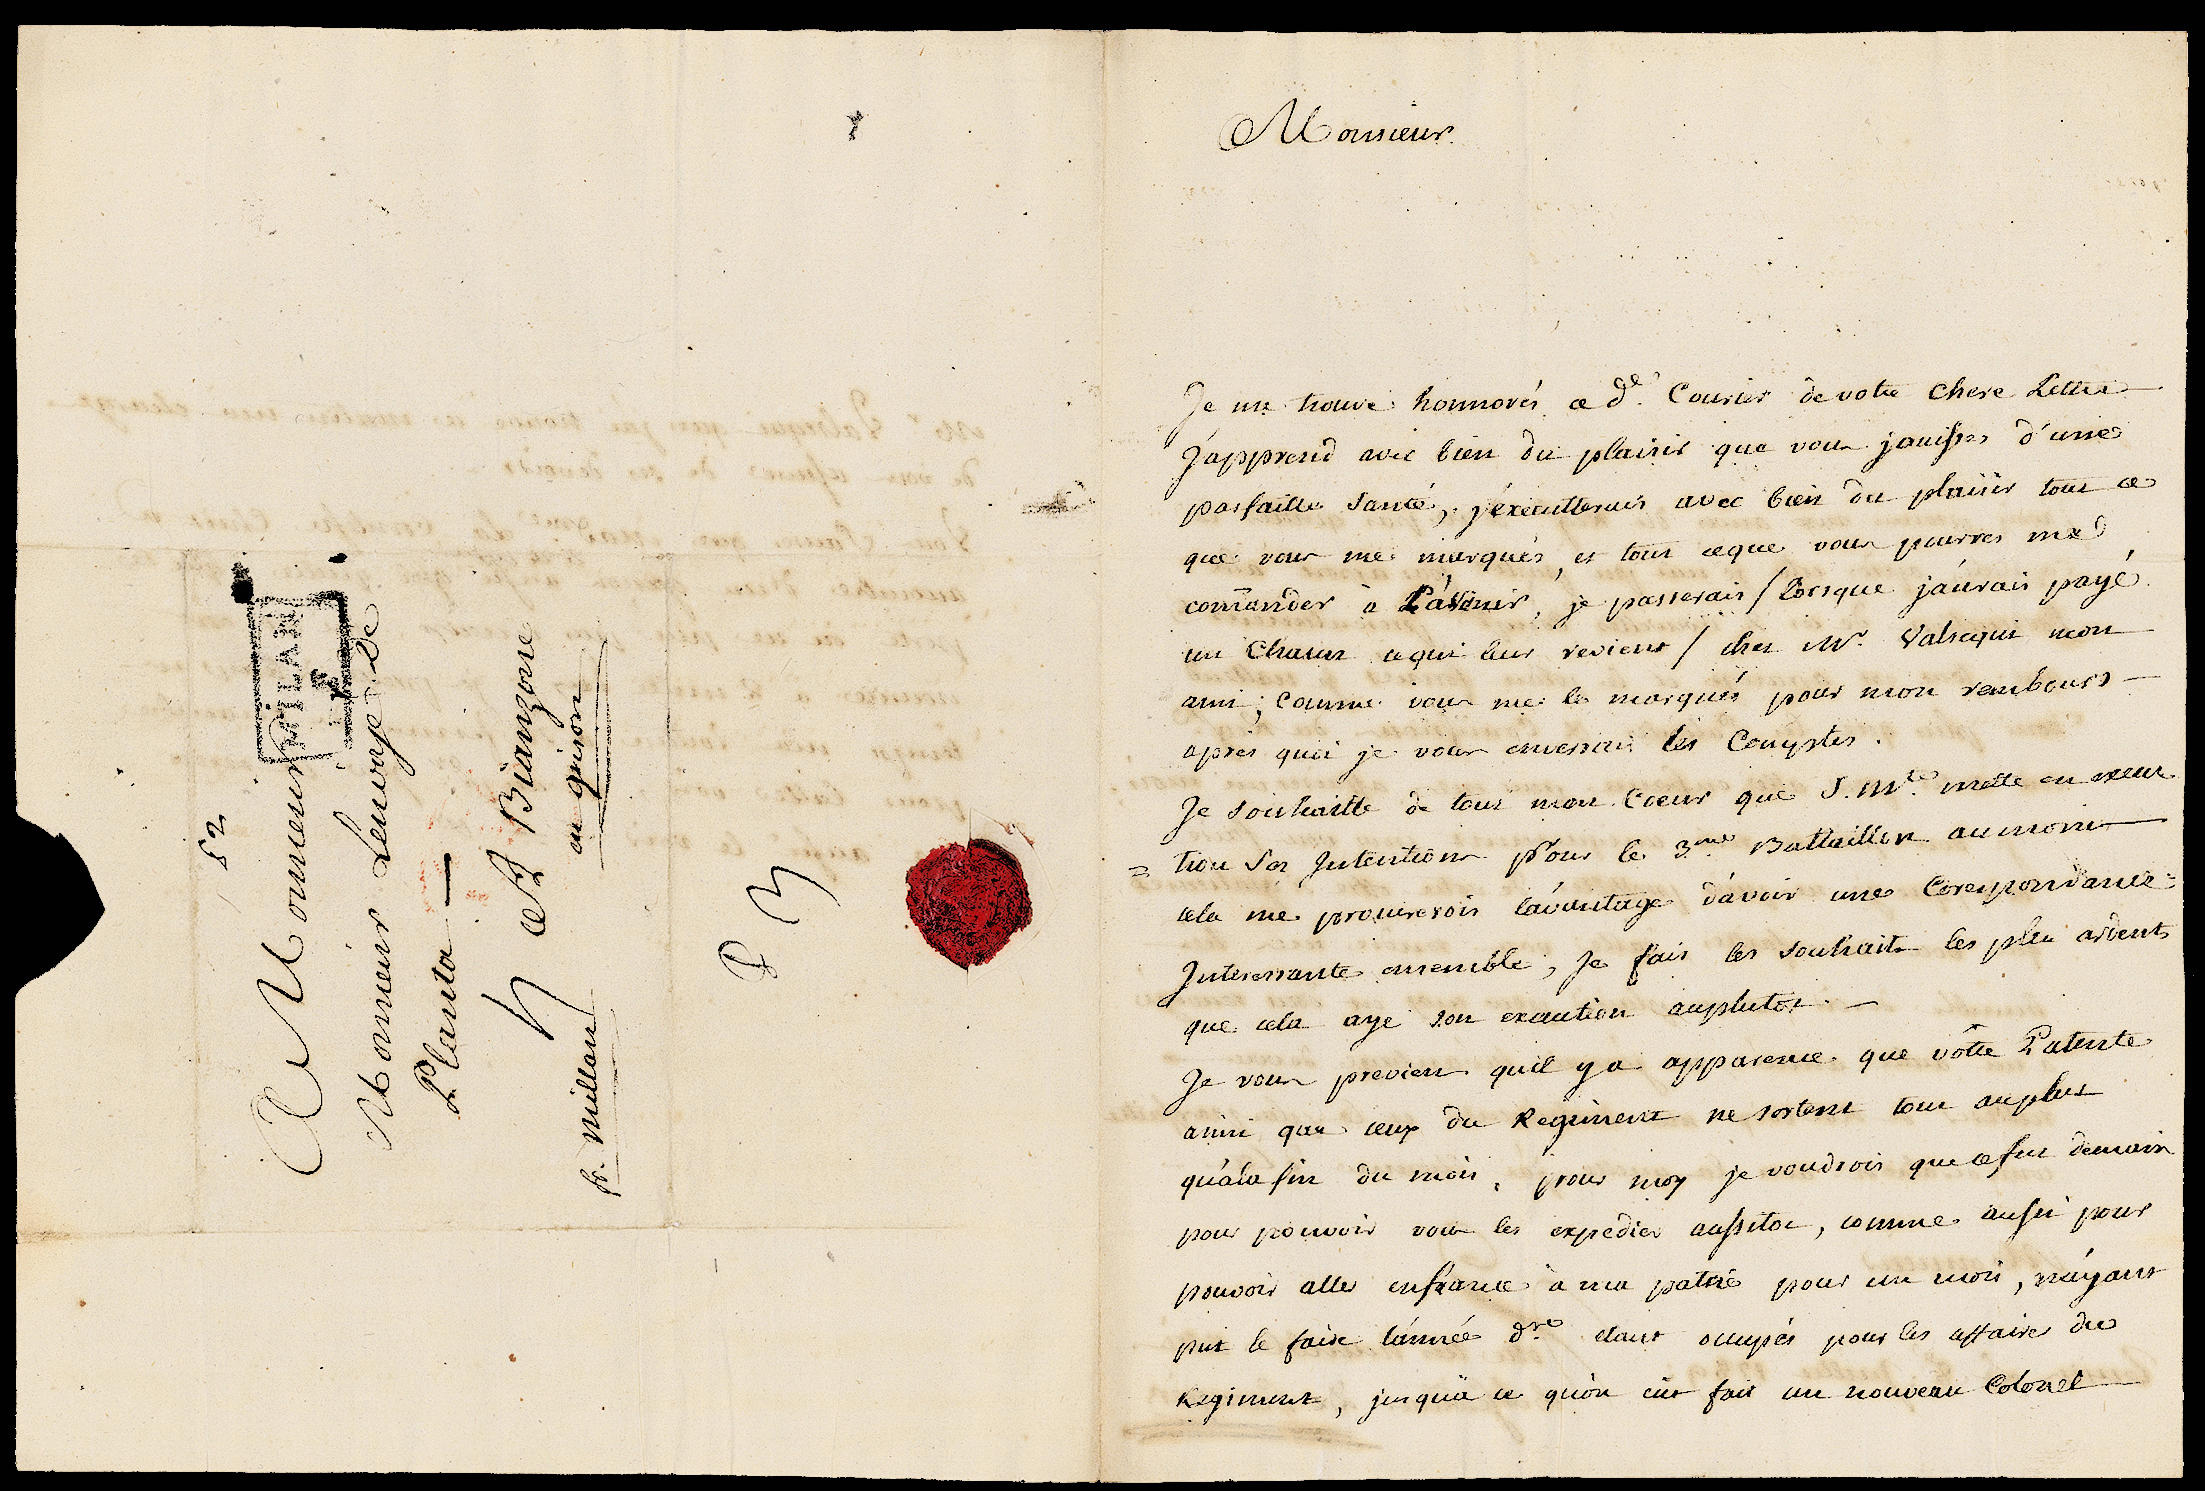 A Monsieur
Monsieur Lenvoyé de
Planta —
à Bianzone
en grison
p. millan
MILAN
52
Monsieur.
Je me trouve honnorés ce de. Courier de votre chere Lettre
J'apprend avec bien du plaisir que vous jouisses d'une
parfaitte Santé, j'éxecutterais avec bien du plaisir tout ce
que vous me marqués, et tout ceque vous pourres me
com̄ander à L'avenir, je passerais / Lorsque j'aurais payé
un Chacun cequi leur revient / chez Mr. Valsequi mon
ami, comme vous me le marqués pour mon rembours —
après quoi je vous enverrai les Comptes.
Je souhaitte de tout mon Coeur que S. Mté. mette en execu
= tion Ses Intentions pour le 3me Battaillon au moins
cela me procureroit l'avantage d'avoir une Corespondance =
Interessante ensemble, Je fais les souhaits les plus ardents
que cela aye son execution auplutot. —
Je vous previens quil y a apparence que vôtre Patente
ainsi que ceux du Regiment ne sortent tout auplus
qu'à la fin du mois, pour moy je voudrois que ce fut demain
pour pouvoir vous les expedier aussitot, comme aussi pour
pouvoir aller enfrance à ma patrie pour un mois, n'ayant
put le faire l'année dre. etant occupés pour les affaires du
Regiment, jusqu'à ce qu'on eut fait un nouveau Colonel